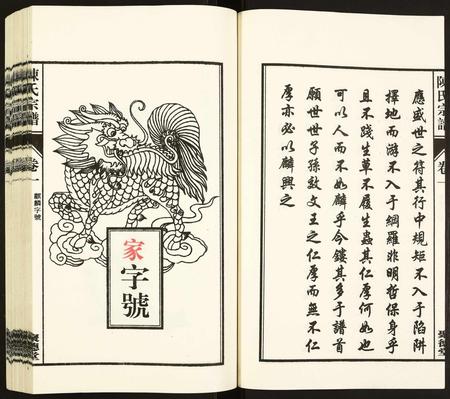 陳氏宗譜
卷一
應盛世之符其行中規矩不入于陷阱
擇地而游不入于網羅非明哲保身乎
且不踐生草不履生蟲其仁厚何如也
可以人而不如麟乎今鏤其多于譜首
願世世子孫效文王之仁厚而無不仁
厚亦必以麟興之
家字號
陳氏宗譜
卷一
麒麟字號
聚德堂